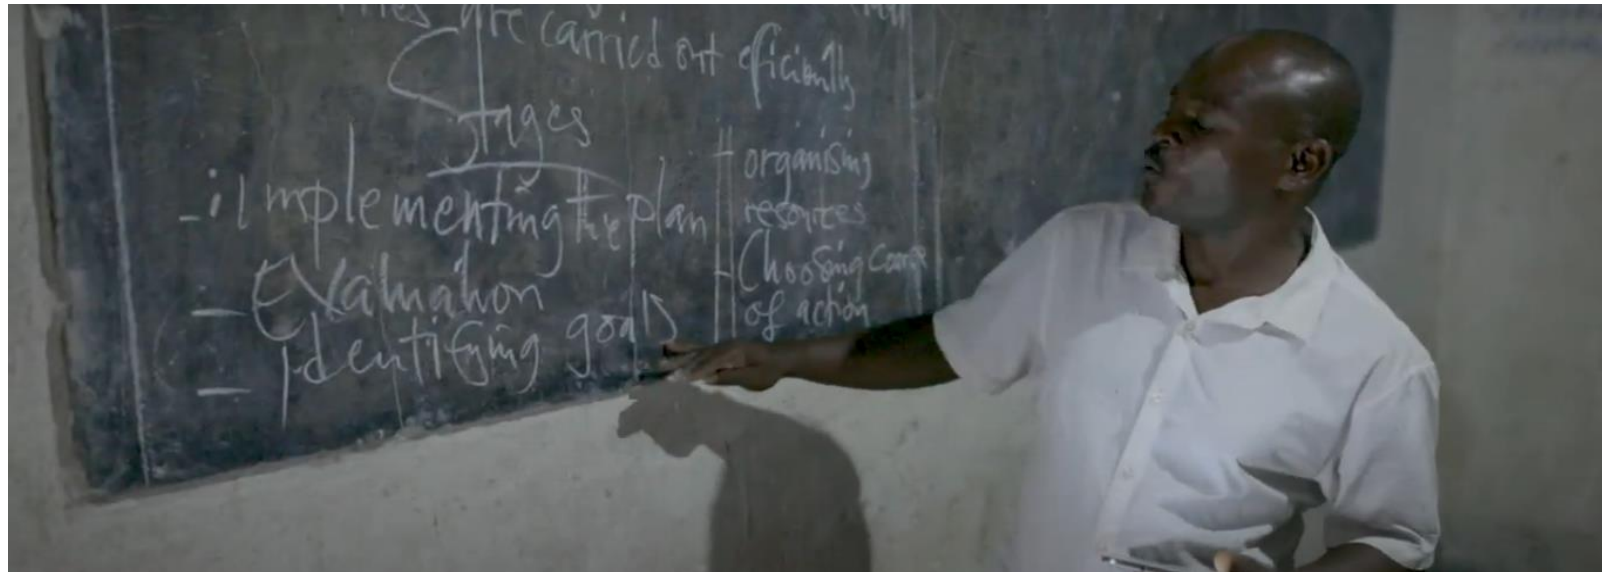 are carried out eficiently
Stages
- implementing the plan
- Evaluation
- Identifying goals
- organising
resources
- Choosing course
of action